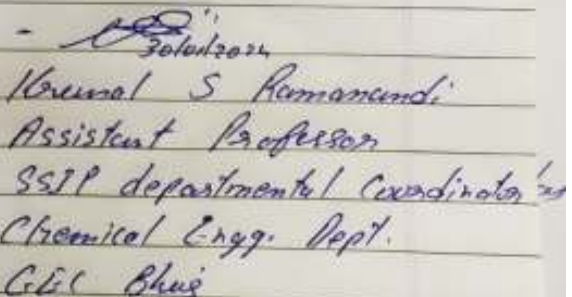 30/01/2024
Krunal S Ramanandi
Assistant Professor
SSIP departmental Coordinator
Chemical Engg. Dept.
GEC Bhuj